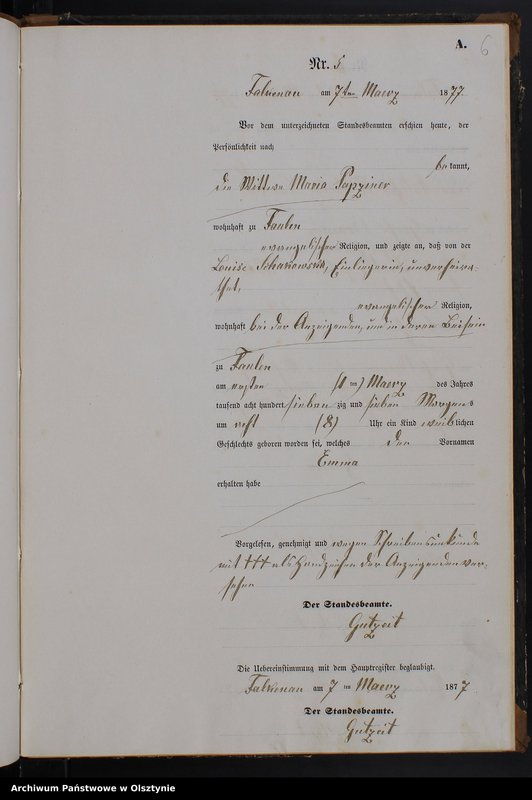 A.
6
Nr. 5
Falkenau am 7ten Maerz 1877.
Vor dem unterzeichneten Standesbeamten erschien heute, der
Persönlichkeit nach
bekannt,
die Wittwe Maria Papziner
wohnhaft zu Faulen
evangelischer Religion, und zeigte an, daß von der
Louise Einliegerin, unverheira-
thet,
evangelischer Religion,
wohnhaft bei der Anzeigenden, und in deren Beisein
zu Faulen
am ersten (1 ten) Maerz des Jahres
tausend acht hundert sieben zig und sieben Morgens
um acht (8) Uhr ein Kind weiblichen
Geschlechts geboren worden sei, welches den Vornamen
Emma
erhalten habe
Vorgelesen, genehmigt und wegen Schreibensunkunde
mit +++ als Handzeichen der Anzeigenden ver-
sehen
Der Standesbeamte.
Gutzeit
Die Uebereinstimmung mit dem Hauptregister beglaubigt.
Falkenau am 7 ten Maerz 1877
Der Standesbeamte.
Gutzeit
Archiwum Państwowe w Olsztynie